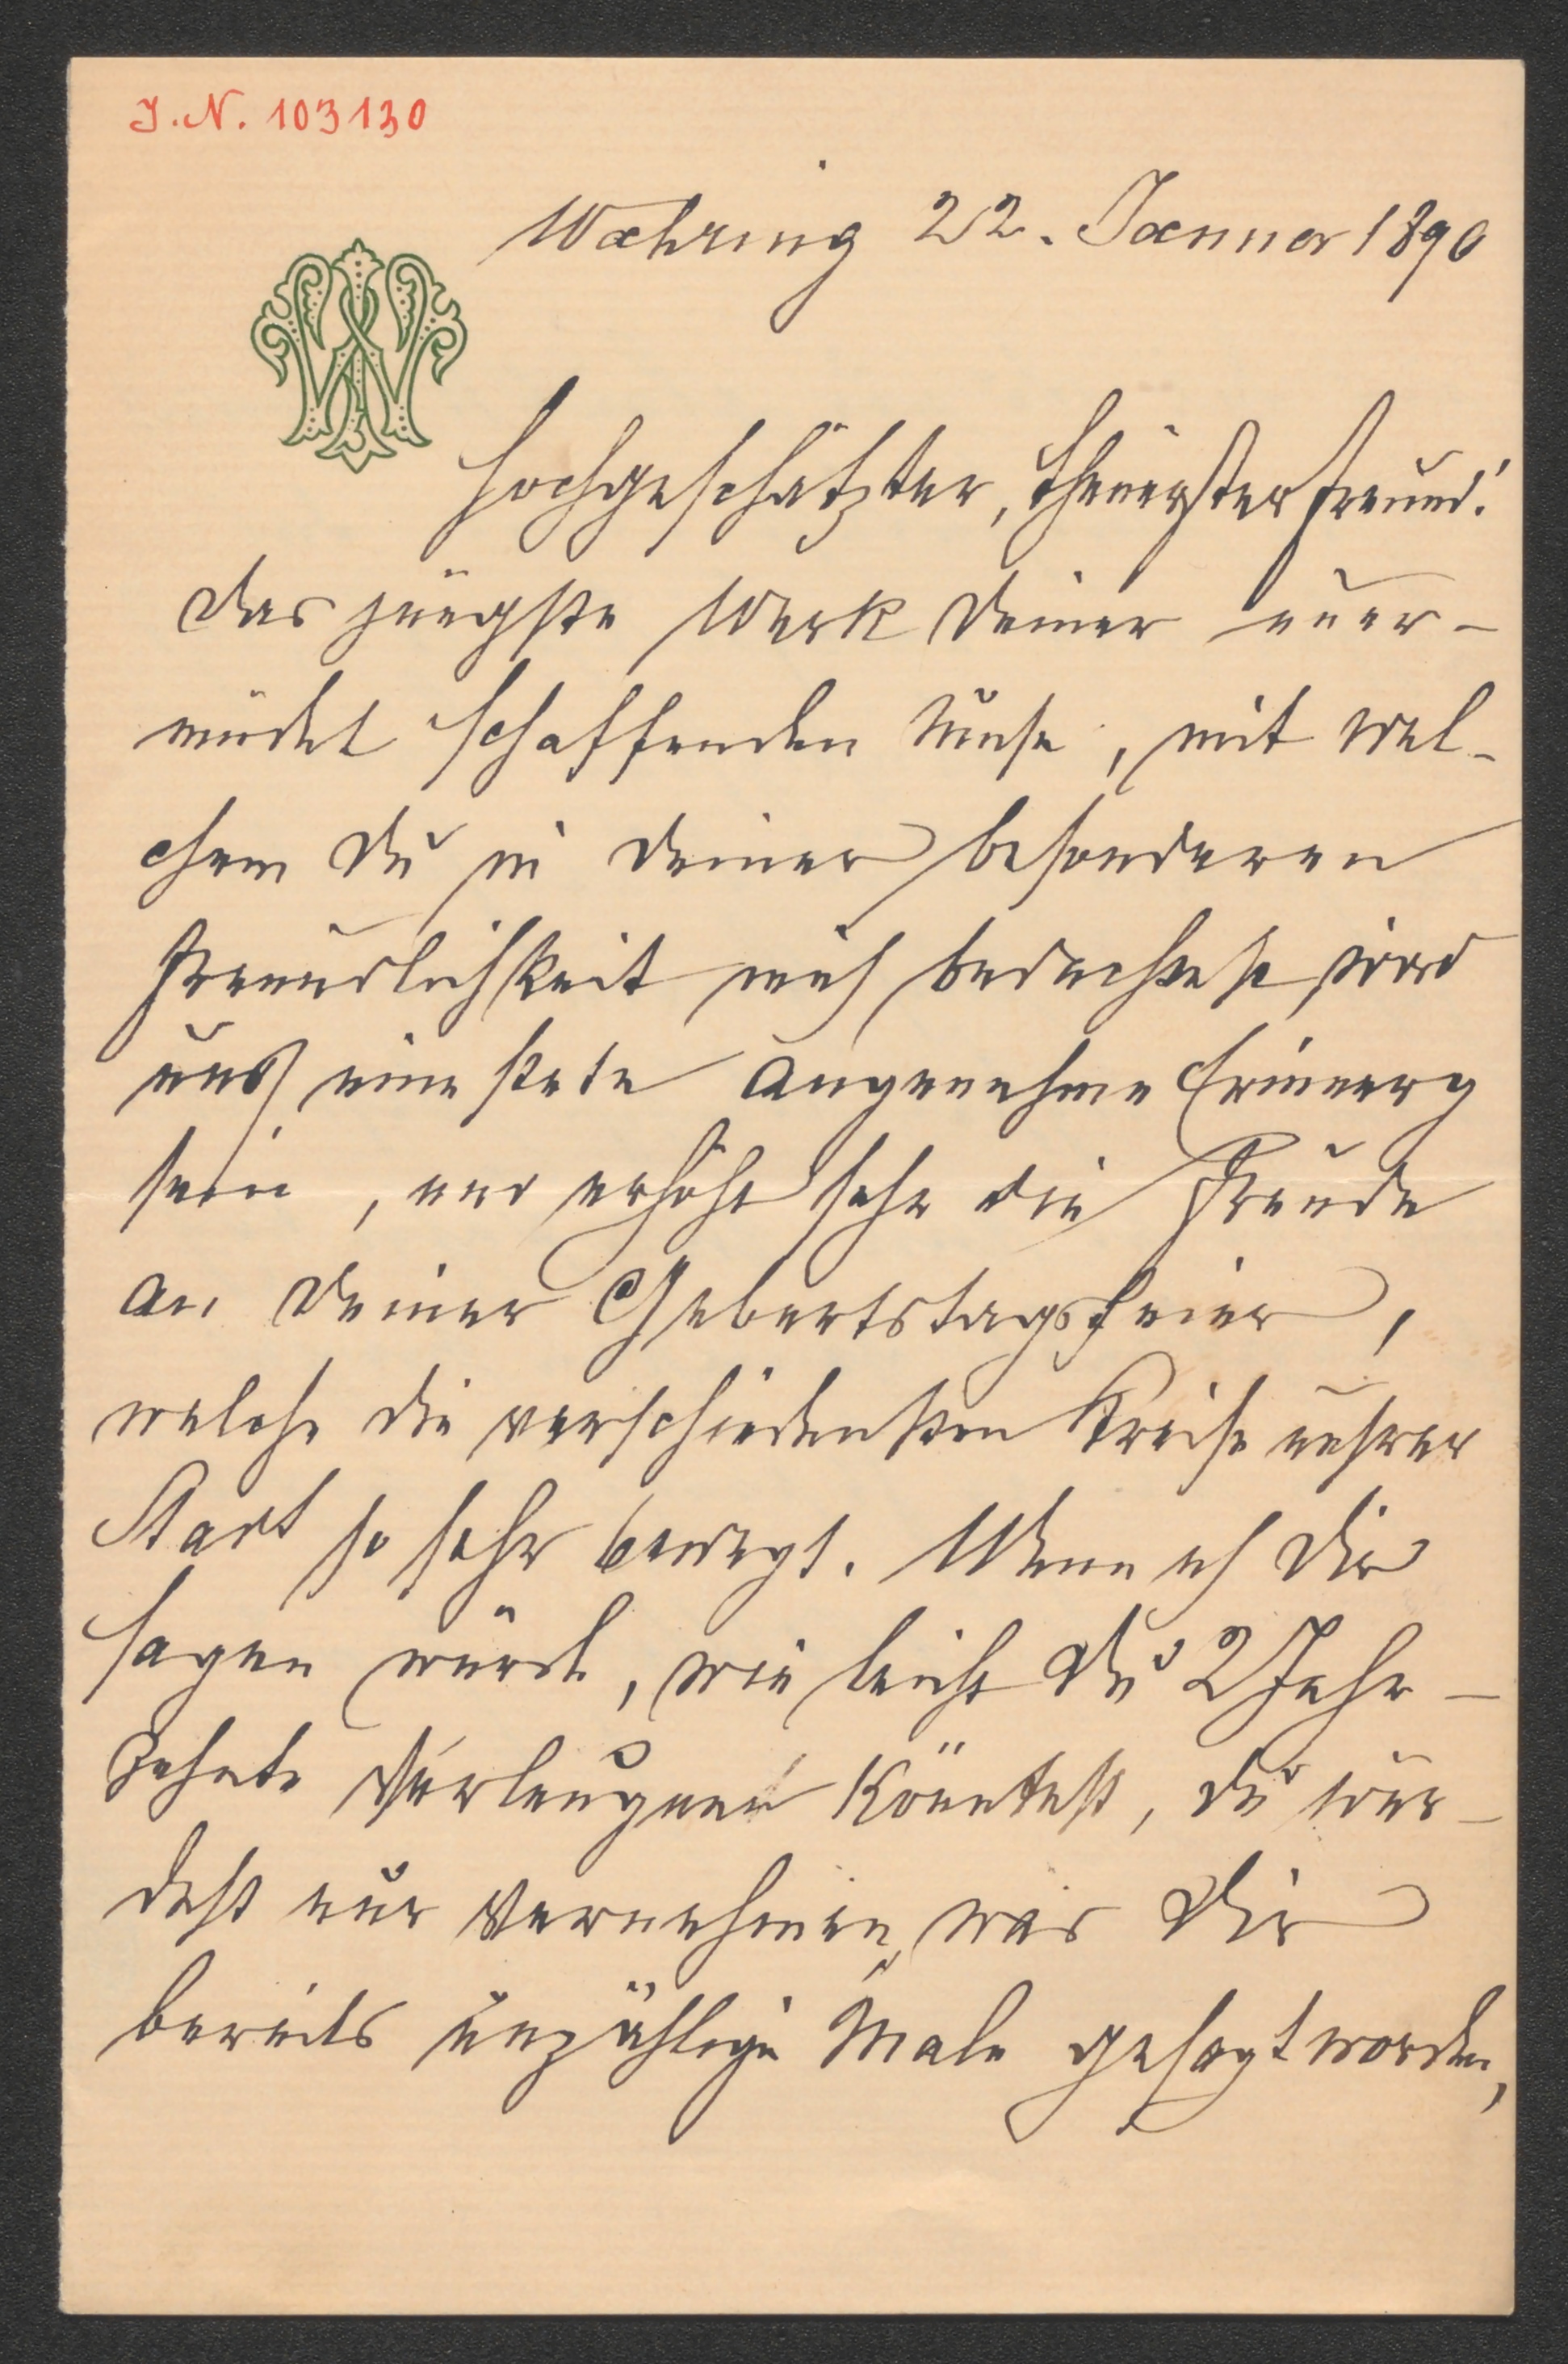 J. N. 103130
Waehring 22. Jaenner 1890
Hochgeschätzter, theuerster Freund!
Das jüngste Werk Deiner uner-
müdet schaffenden Muse, mit wel-
chem Du in Deiner besonderen
Freundlichkeit mich bedachtest, wird
uns eine stete angenehme Erinnerg
sein, und erhöht sehr die Freude
an Deiner Geburtstagsfeier,
welche die verschiedensten Kreise unsrer
Stadt so sehr bewegt. Wenn ich Dir
sagen würde, wie leicht Du 2 Jahr-
zehnte verleugnen könntest, Du wür-
dest nur vernehmen, was Dir
bereits unzählige Male gesagt worden,